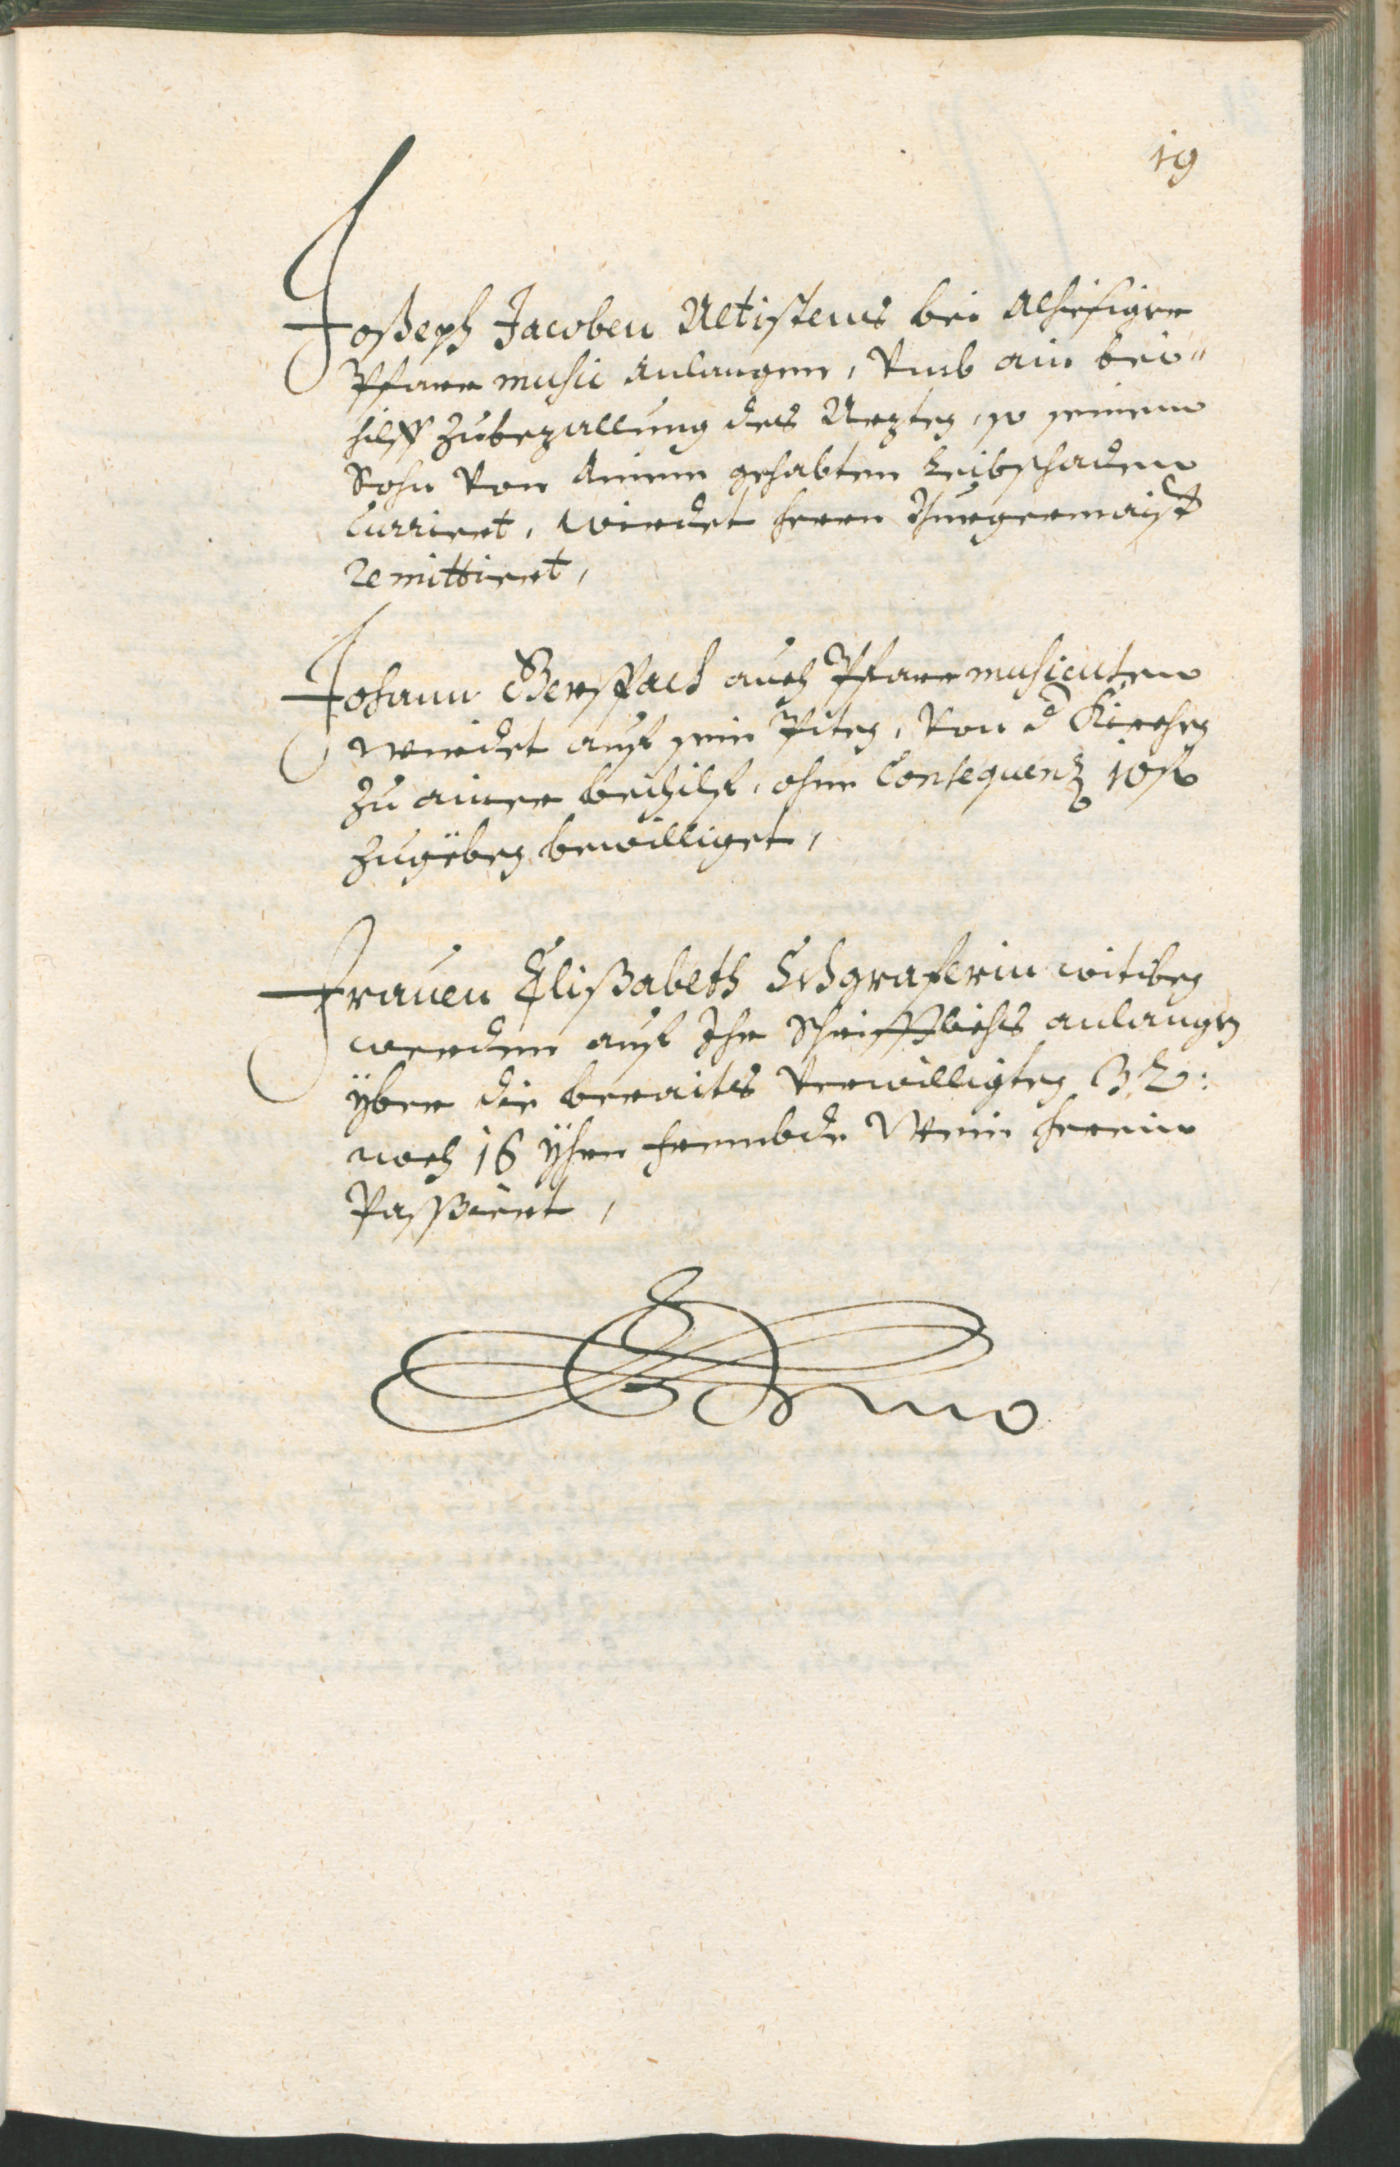 19
Joßeph Jacoben Altistens bei alhiesiger
Pfarr music anlangen, vmb ain bei„
hilff zubezallung des Arztes, so seinem
Sohn von ainem gehabten Leibschaden
Curriert, wirdet herrn Burgermaister
Remittiert,
Johann Gerspach auch Pfarrmusicuten
wirdet auf sein Piten, von d Kirchen
zu ainer beihilf, ohne Consequenz 10 f
zugeben bewilliget,
Frauen Elißabeth Schgraferin witiben
werden auf Ihr Schrifftlichs anlangen
yber die beraits verwilligten 32:
noch 16 Yhrn frembde Wein herein
Passiert,